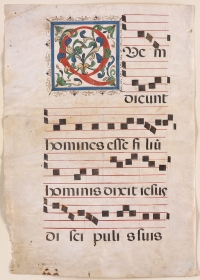 Quem
dicunt
homines esse filiū
hominis dixit iesus
discipulis suis